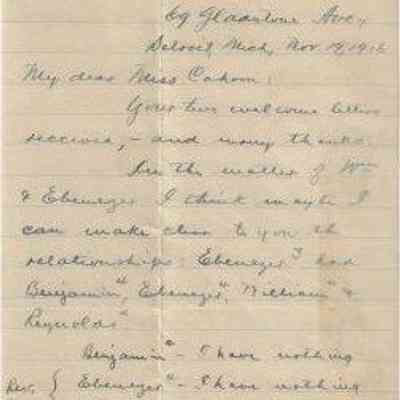 69 Gladstone Ave.,
Detroit, Mich, Nov. 19, 1916
My dear Miss Cahoon:
Your two welcome letters
received, - and many thanks.
In the matter of Wm
& Ebenezer I think maybe I
can make clear to you the
relationships: Ebenezer 3 had
Benjamin 4, Ebenezer 4, William 4 &
Reynolds 4
Benjamin 4 - I have nothing
Rev. { Ebenezer 4 - I have nothing